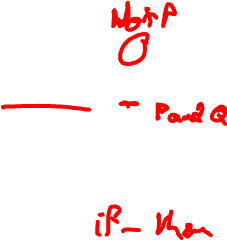 Not P
P and Q
if - then